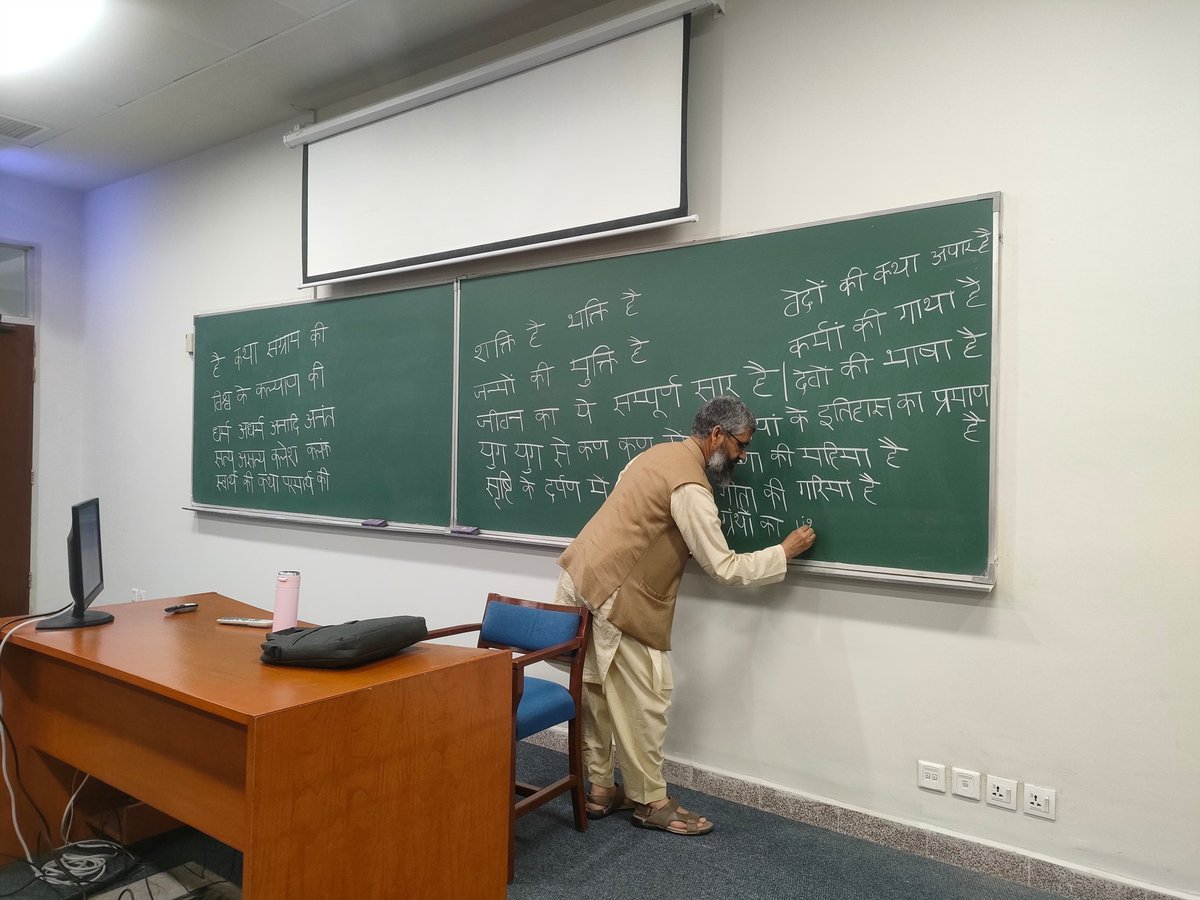 है कथा संग्राम की
विश्व के कल्याण की
धर्म अधर्म अनादि अनंत
सत्य असत्य कलेश कलंक
स्वार्थ की कथा परमार्थ की
शक्ति है भक्ति है
जन्मों की मुक्ति है
जीवन का ये सम्पूर्ण सार है
युग युग से कण कण
सृष्टि के दर्पण में
वेदों की कथा अपार है
कर्मों की गाथा है
देवों की भाषा है
के इतिहास का प्रमाण
है
की महिमा है
गीता की गरिमा है
ग्रंथों का